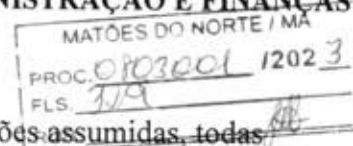 NISTRAÇÃO E FINANÇAS
MATÕES DO NORTE / MA
PROC. 0803001 /2023
FLS. 319
ões assumidas, todas